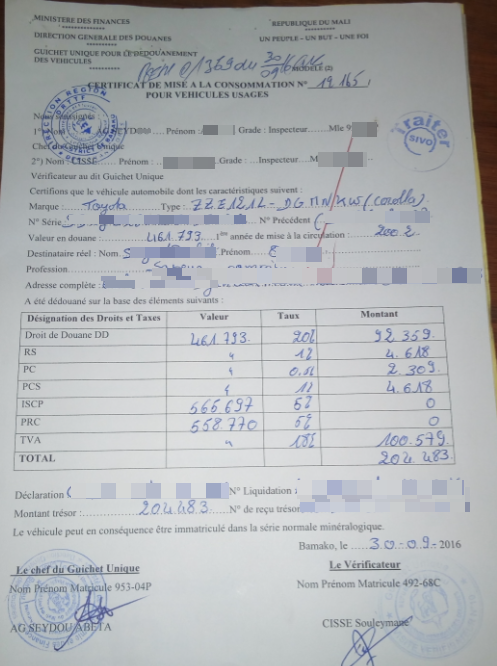 MINISTERE DES FINANCES REPUBLIQUE DU MALI
DIRECTION GENERALE DES DOUANES UN PEUPLE - UN BUT - UNE FOI
GUICHET UNIQUE POUR LE DEDOUANEMENT
DES VEHICULES MODELE (2)
CERTIFICAT DE MISE À LA CONSOMMATION N° 19.165
POUR VEHICULES USAGES
traiter
SIVO
Nous soussignés
1°) Nom : AG SEYDOU Prénom : Grade : Inspecteur Mle 9
Chef du Guichet Unique
2°) Nom : CISSE Prénom : Grade : Inspecteur M
Vérificateur au dit Guichet Unique
Certifions que le véhicule automobile dont les caractéristiques suivent :
Marque : Toyota Type : (corolla)
N° Série N° Précédent
Valeur en douane : 461.793 1ère année de mise à la circulation : 2002
Destinataire réel : Nom S Prénom
Profession
Adresse complète :
A été dédouané sur la base des éléments suivants :
Désignation des Droits et Taxes Valeur Taux Montant
Droit de Douane DD 461.793. 20% 92.359.
RS 1% 4.618
PC 0.5% 2.309
PCS 1% 4.618
ISCP 565697 5% 0
PRC 558.770 5% 0
TVA 18% 100.579.
TOTAL 204.483.
Déclaration N° Liquidation :
Montant trésor : 204483. N° de reçu trésor
Le véhicule peut en conséquence être immatriculé dans la série normale minéralogique.
Bamako, le 30-09-2016
Le chef du Guichet Unique Le Vérificateur
Nom Prénom Matricule 953-04P Nom Prénom Matricule 492-68C
AG SEYDOU ABETA CISSE Souleymane